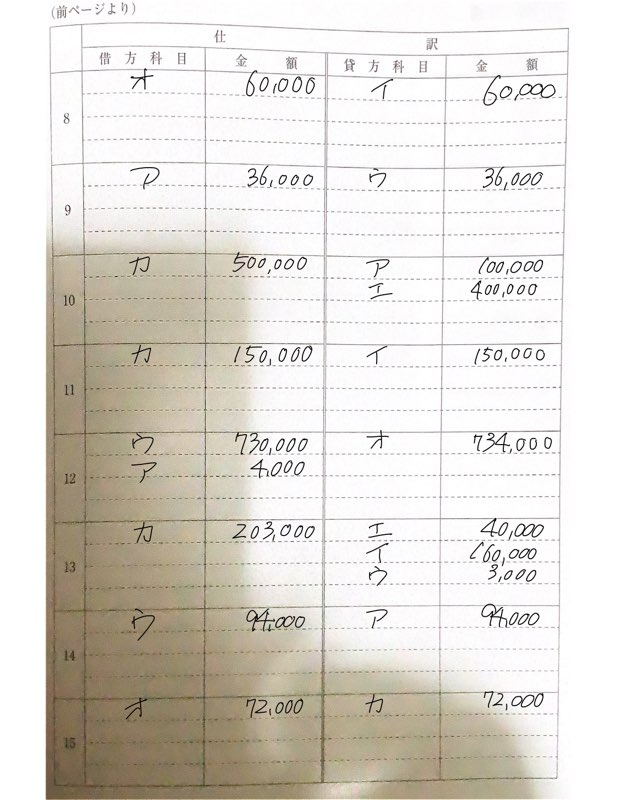 (前ページより)
仕 訳
借方科目 金額 貸方科目 金額
8 オ 60,000 イ 60,000
9 ア 36,000 ウ 36,000
10 カ 500,000 ア 100,000
エ 400,000
11 カ 150,000 イ 150,000
12 ウ 730,000 オ 734,000
ア 4,000
13 カ 203,000 エ 40,000
イ 160,000
ウ 3,000
14 ウ 94,000 ア 94,000
15 オ 72,000 カ 72,000